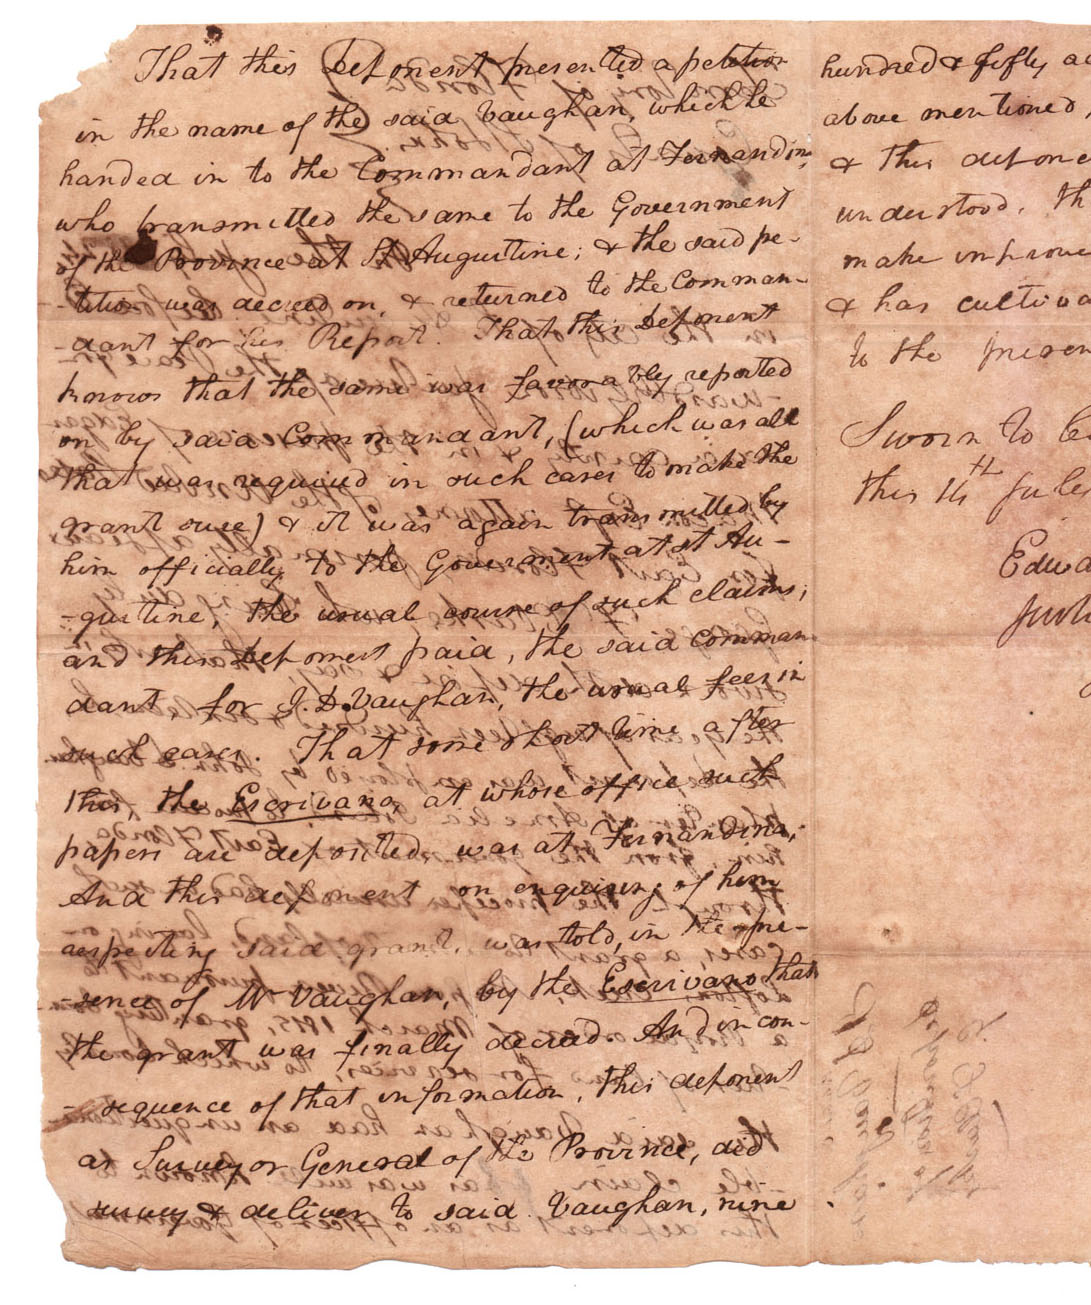 That this deponent presented a petition
in the name of the said Vaughan, which he
handed in to the Commandant at Fernandina,
who transmitted the same to the Government
of the Province at St Augustine; & the said pe-
tition was decreed on, & returned to the Comman-
dant for his Report. That this Deponent
knows that the same was favorably reported
on by said Commandant, (which was all
that was required in such cases to make the
grant sure) & it was again transmitted by
him officially to the Government at St Au-
-gustine, the usual course of such claims;
and this deponent paid, the said Comman-
dant for J. D. Vaughan, the usual fees in
such cases. That some short time after
this the Escrivano, at whose office such
papers are deposited, was at Fernandina;
And this deponent on enquiring of him
respecting said grant, was told, in the pre-
-sence of Mr Vaughan, by the Escrivano that
the grant was finally decreed. And in con-
-sequence of that information, this deponent
as Surveyor General of the Province, did
survey & deliver to said Vaughan, nine
hundred & fifty ac
above mentioned,
& this depone
understood. Th
make improve
& has cultiva
to the presen
Sworn to be
this 14th July
Edwa